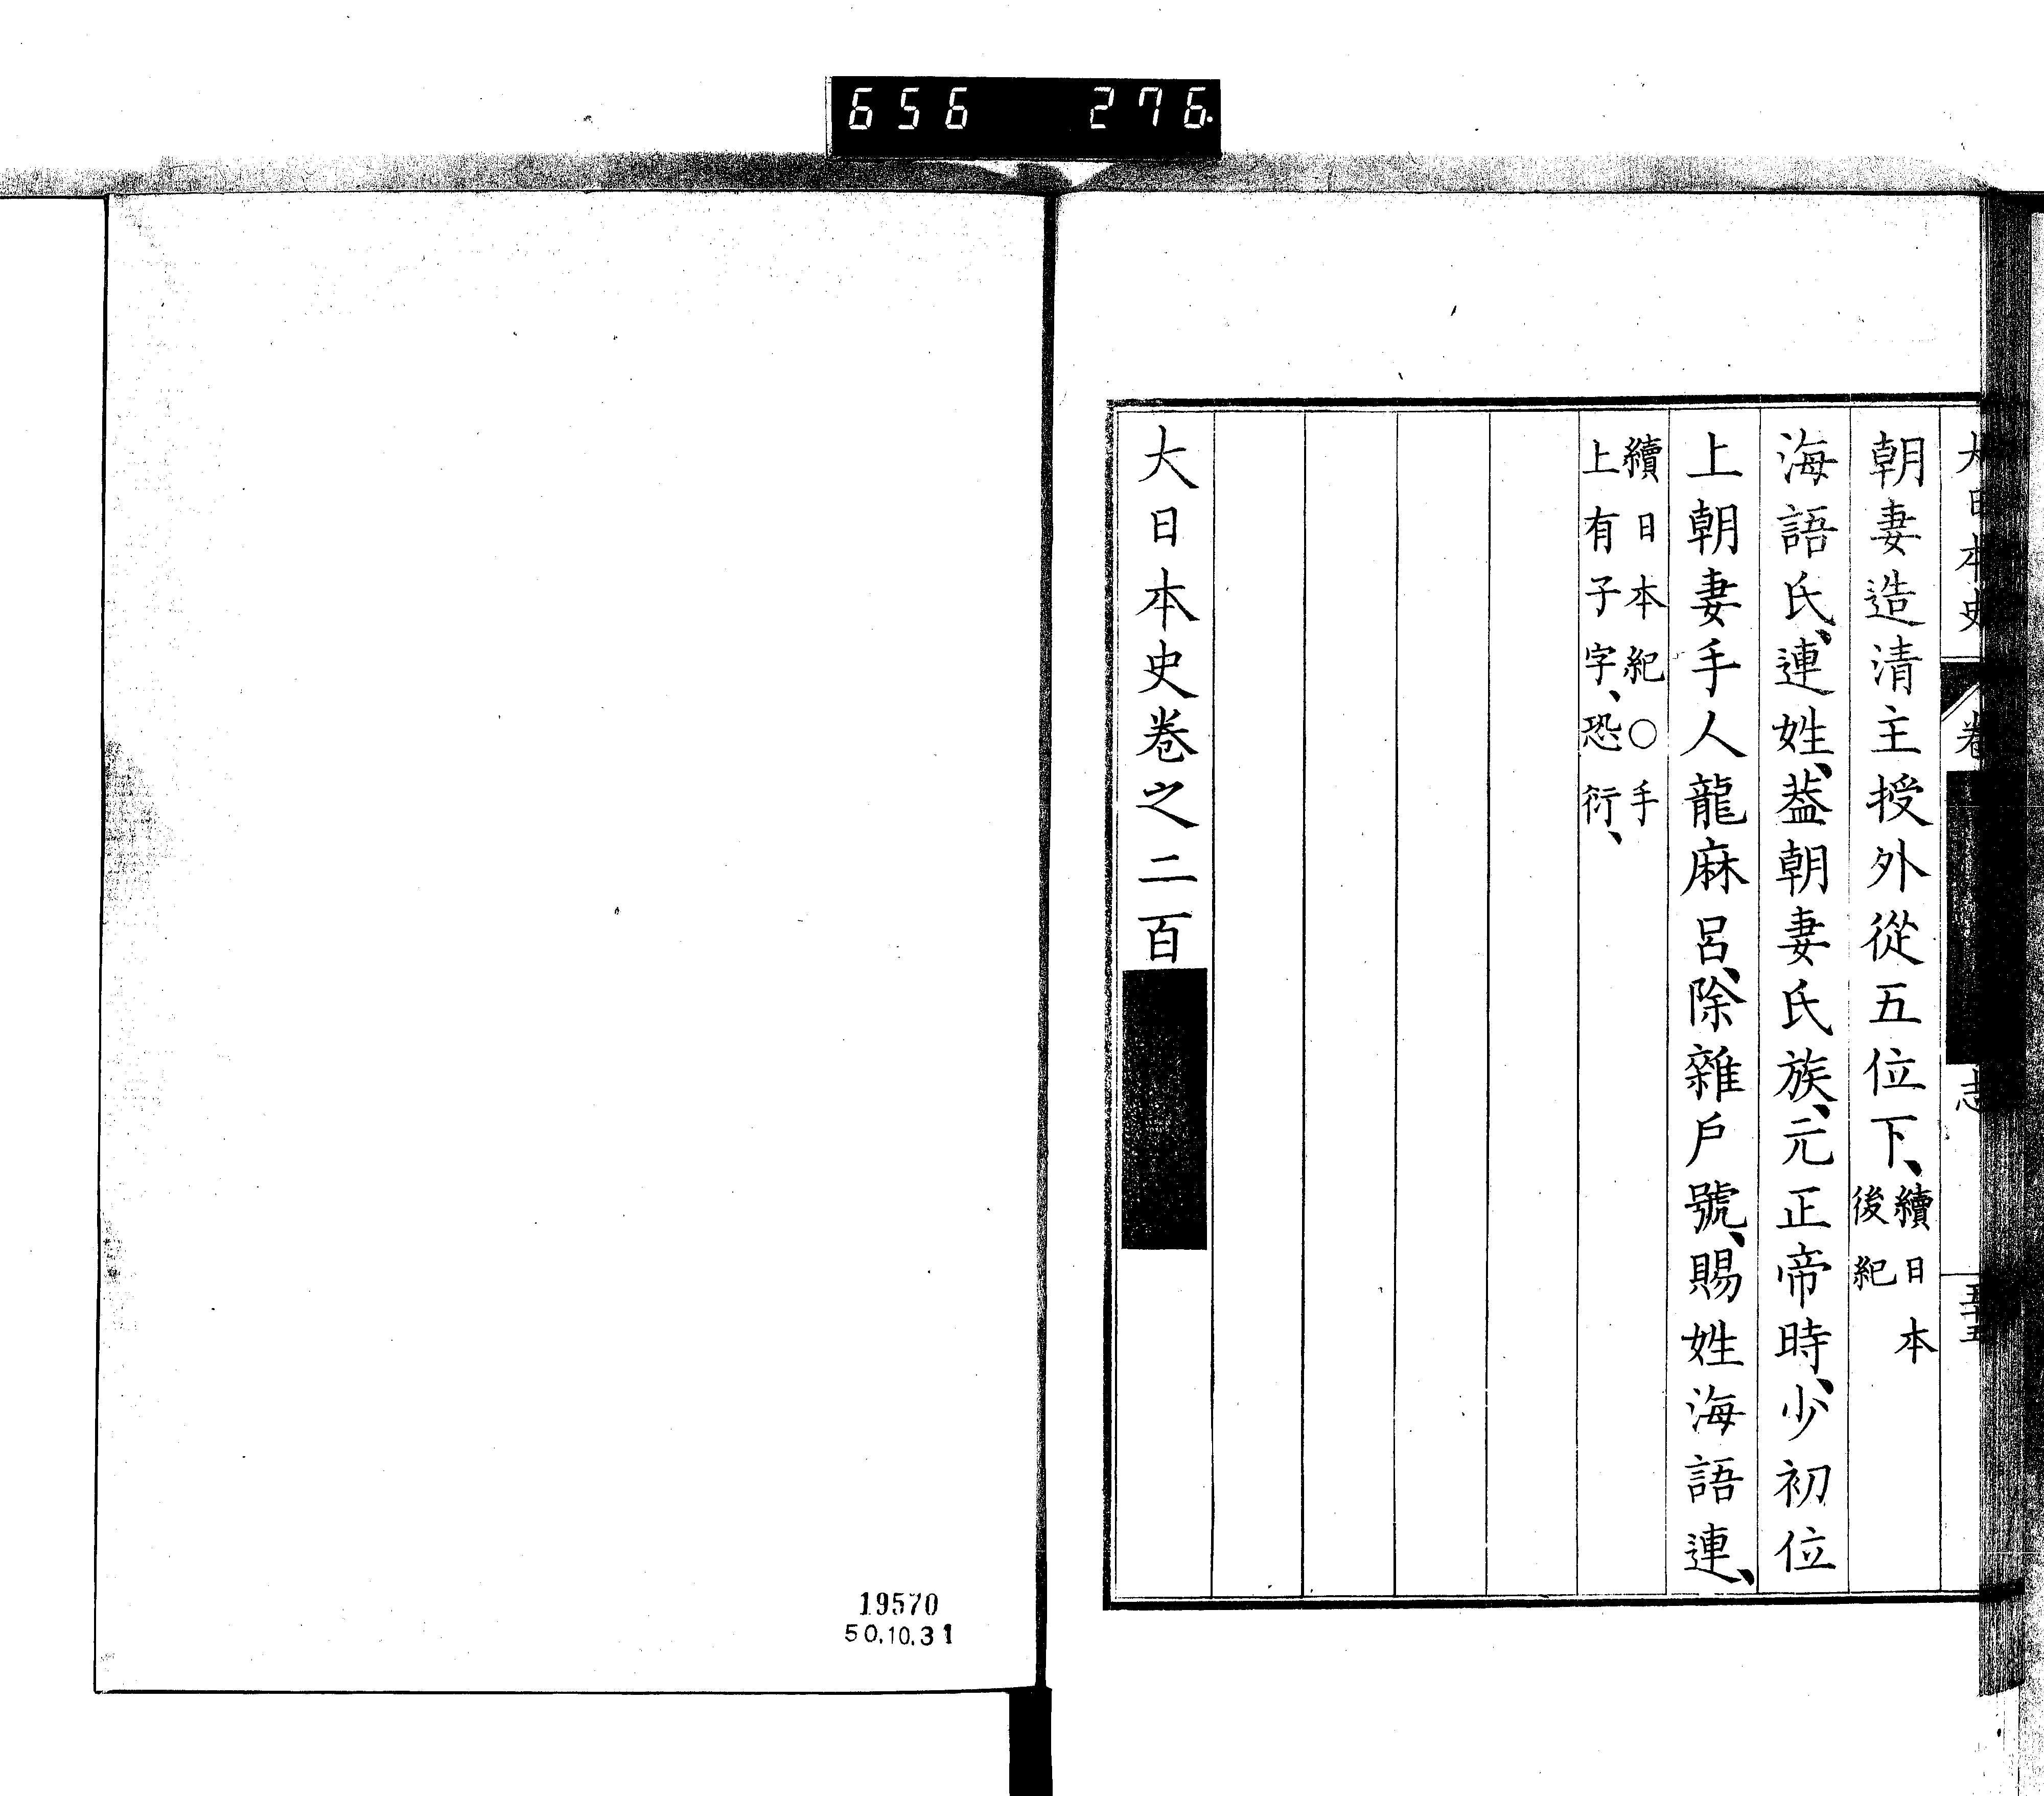 656 276
大日本史 卷 志 五十五
朝妻造清主授外從五位下、續日本後紀
海語氏、連姓、葢朝妻氏族、元正帝時、少初位
上朝妻手人龍麻呂、除雜戶號、賜姓海語連、
續日本紀○手
上有子字、恐衍、
大日本史卷之二百
19570
50.10.31